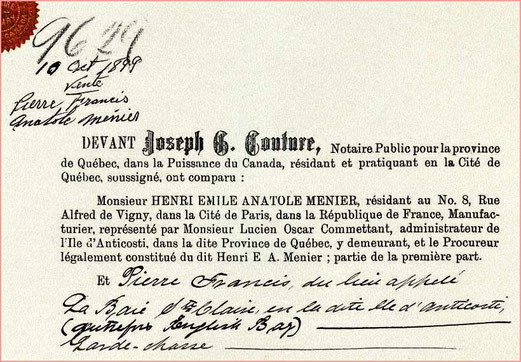 9629
10 Oct 1899
Vente
Pierre Francis
Anatole Ménier
DEVANT Joseph G. Couture, Notaire Public pour la province
de Québec, dans la Puissance du Canada, résidant et pratiquant en la Cité de
Québec, soussigné, ont comparu :
Monsieur HENRI EMILE ANATOLE MENIER, résidant au No. 8, Rue
Alfred de Vigny, dans la Cité de Paris, dans la République de France, Manufac-
turier, représenté par Monsieur Lucien Oscar Commettant, administrateur de
l'Ile d'Anticosti, dans la dite Province de Québec, y demeurant, et le Procureur
légalement constitué du dit Henri E A. Menier ; partie de la première part.
Et Pierre Francis, du lieu appelé
La Baie Ste Claire, en la dite Ile d'Anticosti,
(autrefois English Bay)
Garde-chasse